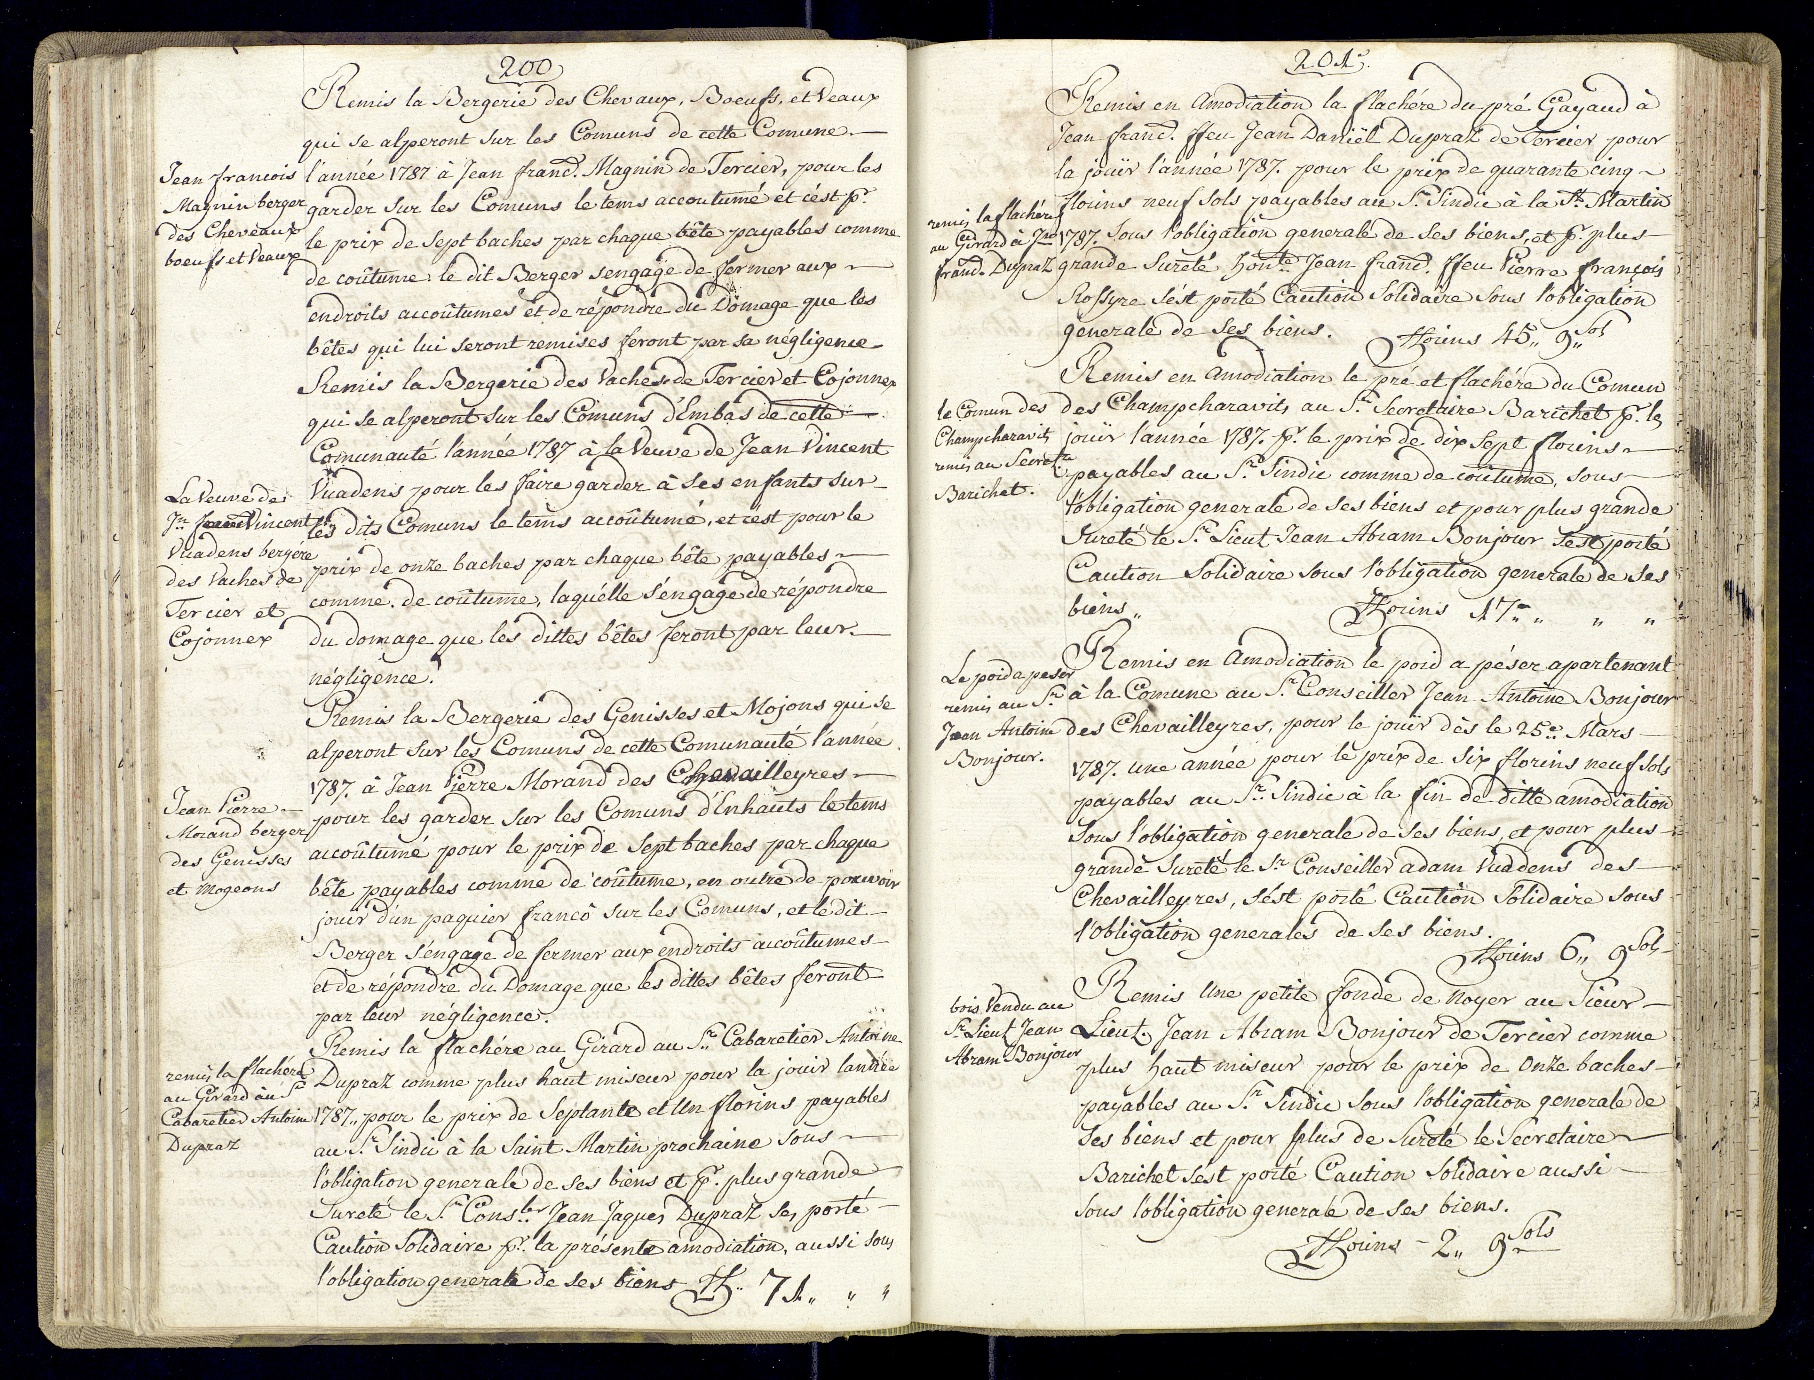 200
Remis la Bergerie des Chevaux, Boeufs, et Veaux
qui se alperont sur les Comuns de cette Comune.
Jean francois
Magnin berger
des Cheveaux
boeufs et Veaux
l'année 1787 à Jean francs. Magnin de Tercier, pour les
garder sur les Comuns le tems accoutumé et c'ést pr.
le prix de Sept baches par chaque bête payables comme
de coûtume le dit Berger s'engage de fermer aux
endroits accoûtumes et de répondre du Domage que les
bêtes qui lui seront remises feront par sa négligence
Remis la Bergerie des Vaches de Tercier et Cojonnex
qui se alperont sur les Comuns d'Embas de cette
Comunauté l'année 1787 à la Veuve de Jean Vincent
La Veuve de
Jn Vincent
Vuadens bergére
des Vaches de
Tercier et
Cojonnex
Vuadens pour les faire garder à ses enfants sur
les dits Comuns le tems accoûtumé, et c'est pour le
prix de onze baches par chaque bête payables
comme de coûtume, laquélle s'éngage de répondre
du domage que les dittes bêtes feront par leur
négligence.
Remis la Bergerie des Genisses et Mojons qui se
alperont sur les Comuns de cette Comunauté l'année
1787. à Jean Pierre Morand des Chevailleyres
Jean Pierre
Morand berger
des Genisses
et mogeons
pour les garder sur les Comuns d'Enhauts le tems
accoûtumé pour le prix de Sept baches par chaque
bête payables comme de coûtume, en outre de pouvoir
jouir d'un paquier franco sur les Comuns, et le dit
Berger s'éngage de fermer aux endroits accoûtumes
et de répondre du Domage que les dittes bêtes feront
par leur négligence.
Remis la flachére au Girard au Sr. Cabaretier Antoine
remis la flachére
au Girard au Sr
Cabaretier Antoine
Dupraz
Dupraz comme plus haut miseur pour la jouir l'année
1787., pour le prix de Septante et Un florins payables
au Sr. Sindic à la Saint Martin prochaine sous
l'obligation generale de ses biens et pr. plus grande
Sureté le Sr. Consler Jean Jaques Dupraz ses porté
Caution Solidaire pr. la présente amodiation, aussi sous
l'obligation generale de ses biens ff.. 71 „ „ „
201.
Remis en Amodiation la flachére du pré Gayaud à
Jean francs. ffeu Jean Daniël Dupraz de Tercier pour
la joüir l'année 1787. pour le prix de quarante cinq
remis la flachére
au Girard à Jean
francs. Dupraz
florins neuf sols payables au Sr. Sindic à la St. Martin
1787. Sous l'obligation generale de ses biens, et pr. plus
grande Sureté honte. Jean francs. ffeu Pierre françois
Rossyre s'ést porté Caution Solidaire sous l'obligation
génerale de ses biens. fflorins 45 „ 9 „ Sol
Remis en amodiation le pré et flachére du Comun
le Comun des
Champcharavits
remis au Secretre
Barichet.
des Champcharavits au Sr. Secretaire Barichet pr. le
jouir l'année 1787. pr. le prix de dix sept florins
payables au Sr. Sindic comme de coûtume, sous
l'obligation generale de ses biens et pour plus grande
Sureté le Sr. Lieut Jean Abram Bonjour s'est porté
Caution Solidaire sous l'obligation generale de ses
biens „ fflorins 17 „ „ „
Remis en Amodiation le poid a péser apartenant
Le poid a peser
remis au Sr.
Jean Antoine
Bonjour.
à la Comune au Sr. Conseiller Jean Antoine Bonjour
des Chevailleyres, pour le joüir dès le 25e Mars
1787. une année pour le prix de six florins neuf sols
payables au Sr. Sindic à la fin de ditte amodiation
sous l'obligation generale de ses biens, et pour plus
grande Sureté le Sr Conseiller adam Vuadens des
Chevailleyres, s'ést porté Caution Solidaire sous
l'obligation generales de ses biens.
fflorins 6 „ 9 Sols
Remis une petite fonde de Noyer au Sieur
bois Vendu au
Sr Lieut Jean
Abram Bonjour
Lieut. Jean Abram Bonjour de Tercier comme
plus haut miseur pour le prix de Onze baches
payables au Sr. Sindic sous l'obligation generale de
ses biens et pour plus de Sureté le Secretaire
Barichet s'ést porté Caution Solidaire aussi
sous l'obligation generale de ses biens.
fflorins 2 „ 9 Sols